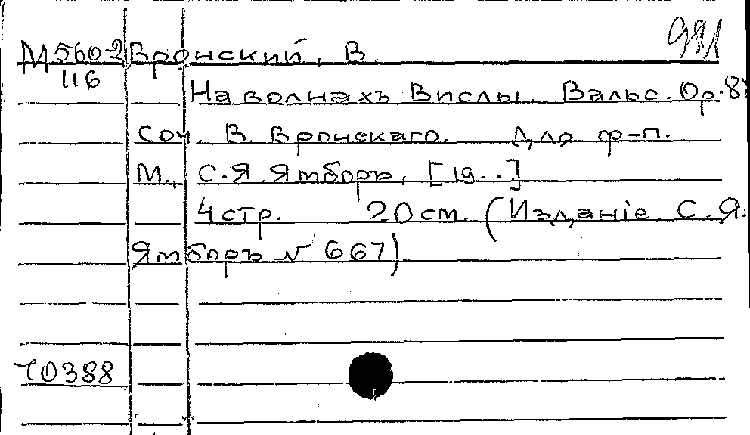 991
М560-2 Вронский, В.
116
На волнахъ Вислы. Вальс. Ор.8
Соч. В. Вронскаго. Для ф-п.
М., С.Я. Ямборъ, [19..]
4стр. 20см. (Изданіе С.Я.
Ямборъ № 667)
70388